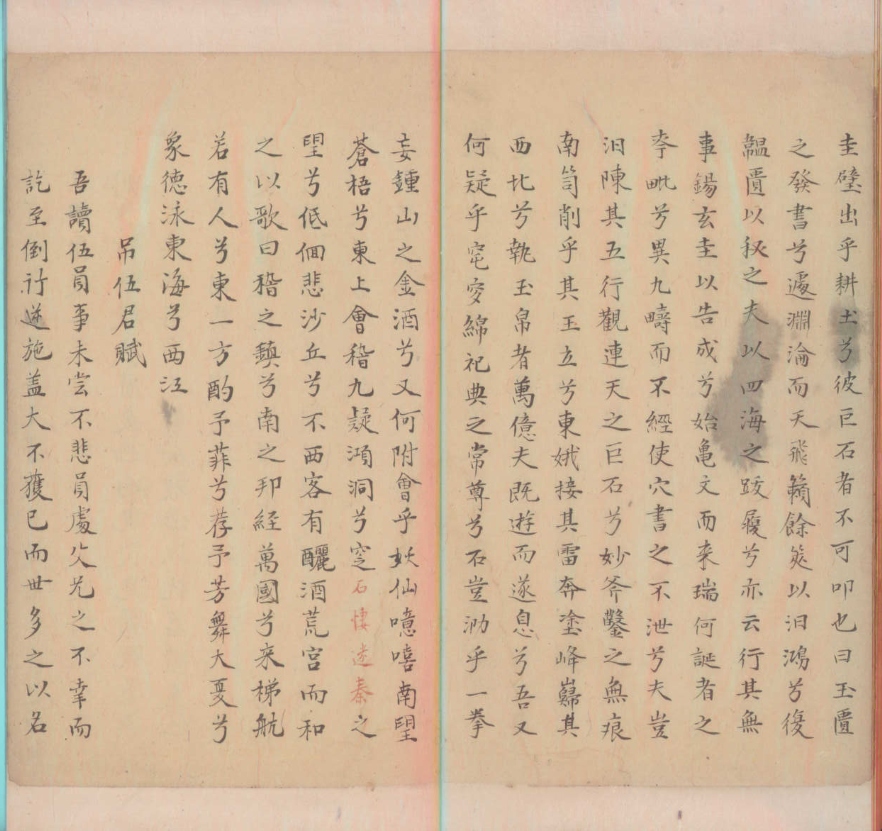 圭璧出乎耕土兮彼巨石者不可叩也曰玉匱
之發書兮遽淵淪而天飛籥餘筴以汨鴻兮復
韞匵以秘之夫以四海之跋履兮亦云行其無
事錫玄圭以告成兮始龜文而来瑞何誕者之
夸毗兮異九疇而不經使穴書之不泄兮夫豈
汨陳其五行觀連天之巨石兮妙斧鑿之無痕
南笥削乎其玉立兮東娥接其雷奔塗峰巋其
西北兮執玉帛者萬億夫既遊而遂息兮吾又
何疑乎窀穸綿祀典之常尊兮石豈泐乎一拳
妄鍾山之金酒兮又何附會乎妖仙噫嘻南望
蒼梧兮東上會稽九疑澒洞兮窆石悽迷秦之
望兮低佪悲沙丘兮不西客有釃酒荒宮而和
之以歌曰稽之鎮兮南之邦經萬國兮来梯航
若有人兮東一方酌予菲兮荐予芳舞大夏兮
象德泳東海兮西江
吊伍君賦
吾讀伍員事未尝不悲員處父兄之不幸而
訖至倒行逆施盖大不獲已而世多之以名